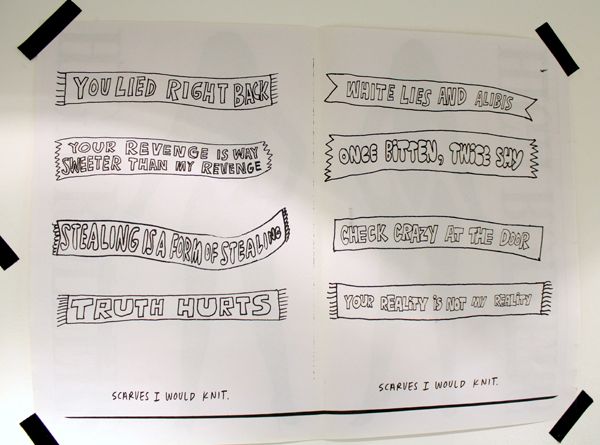 YOU LIED RIGHT BACK
YOUR REVENGE IS WAY
SWEETER THAN MY REVENGE
STEALING IS A FORM OF STEALING
TRUTH HURTS
SCARVES I WOULD KNIT.
WHITE LIES AND ALIBIS
ONCE BITTEN, TWICE SHY
CHECK CRAZY AT THE DOOR
YOUR REALITY IS NOT MY REALITY
SCARVES I WOULD KNIT.